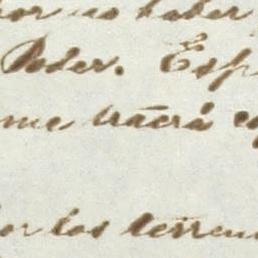 por no haber
Poder. Esp
me traerá
por los terren